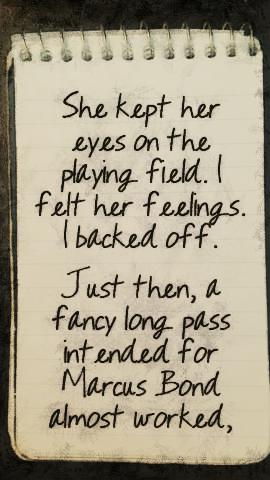 She kept her
eyes on the
playing field. I
felt her feelings.
I backed off.
Just then, a
fancy long pass
intended for
Marcus Bond
almost worked,